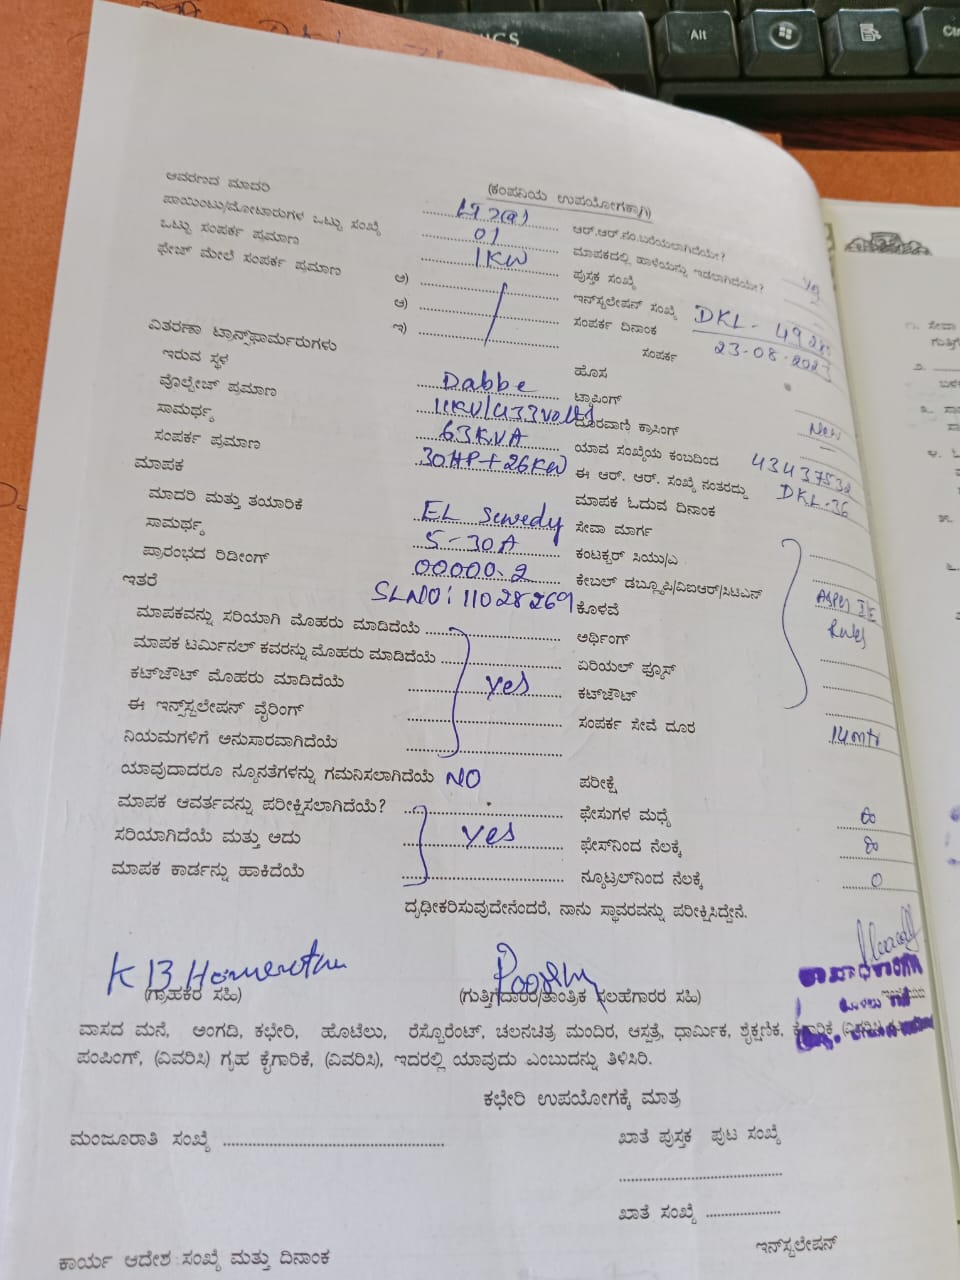 (ಕಂಪನಿಯ ಉಪಯೋಗಕ್ಕಾಗಿ)
ಆವರಣದ ಮಾದರಿ LT 2(a) ಆರ್.ಆರ್.ನಂ.ಬರೆಯಲಾಗಿದೆಯೇ? Yes
ಪಾಯಿಂಟು/ಮೋಟಾರುಗಳ ಒಟ್ಟು ಸಂಖ್ಯೆ 01 ಮಾಪಕದಲ್ಲಿ ಹಾಳೆಯನ್ನು ಇಡಲಾಗಿದೆಯೇ?
ಒಟ್ಟು ಸಂಪರ್ಕ ಪ್ರಮಾಣ 1KW ಪುಸ್ತಕ ಸಂಖ್ಯೆ
ಫೇಜ್ ಮೇಲೆ ಸಂಪರ್ಕ ಪ್ರಮಾಣ ಅ) ಇನ್‌ಸ್ಟಲೇಷನ್ ಸಂಖ್ಯೆ DKL-
ಆ) ಸಂಪರ್ಕ ದಿನಾಂಕ 23-08-2023
ಇ) ಸಂಪರ್ಕ
ವಿತರಣಾ ಟ್ರಾನ್ಸ್‌ಫಾರ್ಮರುಗಳು ಹೊಸ
ಇರುವ ಸ್ಥಳ Dabbe ಟ್ಯಾಪಿಂಗ್ New
ವೊಲ್ಟೇಜ್ ಪ್ರಮಾಣ 11KV/433volts ದೂರವಾಣಿ ಕ್ರಾಸಿಂಗ್
ಸಾಮರ್ಥ್ಯ 63KVA ಯಾವ ಸಂಖ್ಯೆಯ ಕಂಬದಿಂದ 43437532
ಸಂಪರ್ಕ ಪ್ರಮಾಣ 30HP+26KW ಈ ಆರ್. ಆರ್. ಸಂಖ್ಯೆ ನಂತರದ್ದು DKL-36
ಮಾಪಕ ಮಾಪಕ ಓದುವ ದಿನಾಂಕ
ಮಾದರಿ ಮತ್ತು ತಯಾರಿಕೆ EL Sewedy ಸೇವಾ ಮಾರ್ಗ
ಸಾಮರ್ಥ್ಯ 5-30A ಕಂಟಕ್ಟರ್ ಸಿಯು/ಎ
ಪ್ರಾರಂಭದ ರಿಡೀಂಗ್ 00000.2 ಕೇಬಲ್ ಡಬ್ಲ್ಯೂಪಿ/ವಿಐಆರ್/ಸಿಟಿಎಸ್ Asper IE
ಇತರೆ SLNO: 11028269 ಕೊಳವೆ Rules
ಮಾಪಕವನ್ನು ಸರಿಯಾಗಿ ಮೊಹರು ಮಾಡಿದೆಯೆ ಅರ್ಥಿಂಗ್
ಮಾಪಕ ಟರ್ಮಿನಲ್ ಕವರನ್ನು ಮೊಹರು ಮಾಡಿದೆಯೆ ಏರಿಯಲ್ ಫ್ಯೂಸ್
ಕಟ್‌ಔಟ್ ಮೊಹರು ಮಾಡಿದೆಯೆ yes ಕಟ್‌ಔಟ್
ಈ ಇನ್ಸ್‌ಸ್ಟಲೇಷನ್ ವೈರಿಂಗ್ ಸಂಪರ್ಕ ಸೇವೆ ದೂರ 14mtr
ನಿಯಮಗಳಿಗೆ ಅನುಸಾರವಾಗಿದೆಯೆ
ಯಾವುದಾದರೂ ನ್ಯೂನತೆಗಳನ್ನು ಗಮನಿಸಲಾಗಿದೆಯೆ NO ಪರೀಕ್ಷೆ
ಮಾಪಕ ಆವರ್ತವನ್ನು ಪರೀಕ್ಷಿಸಲಾಗಿದೆಯೆ? ಫೇಸುಗಳ ಮಧ್ಯೆ ∞
ಸರಿಯಾಗಿದೆಯೆ ಮತ್ತು ಅದು yes ಫೇಸ್‌ನಿಂದ ನೆಲಕ್ಕೆ ∞
ಮಾಪಕ ಕಾರ್ಡನ್ನು ಹಾಕಿದೆಯೆ ನ್ಯೂಟ್ರಲ್‌ನಿಂದ ನೆಲಕ್ಕೆ 0
ದೃಢೀಕರಿಸುವುದೇನೆಂದರೆ, ನಾನು ಸ್ಥಾವರವನ್ನು ಪರೀಕ್ಷಿಸಿದ್ದೇನೆ.
(ಗ್ರಾಹಕರ ಸಹಿ) (ಗುತ್ತಿಗೆದಾರರ/ತಾಂತ್ರಿಕ ಸಲಹೆಗಾರರ ಸಹಿ)
ವಾಸದ ಮನೆ, ಅಂಗಡಿ, ಕಛೇರಿ, ಹೊಟೆಲು, ರೆಸ್ಟೊರೆಂಟ್, ಚಲನಚಿತ್ರ ಮಂದಿರ, ಆಸ್ಪತ್ರೆ, ಧಾರ್ಮಿಕ, ಶೈಕ್ಷಣಿಕ,
ಪಂಪಿಂಗ್, (ವಿವರಿಸಿ) ಗೃಹ ಕೈಗಾರಿಕೆ, (ವಿವರಿಸಿ), ಇದರಲ್ಲಿ ಯಾವುದು ಎಂಬುದನ್ನು ತಿಳಿಸಿರಿ.
ಕಛೇರಿ ಉಪಯೋಗಕ್ಕೆ ಮಾತ್ರ
ಮಂಜೂರಾತಿ ಸಂಖ್ಯೆ ಖಾತೆ ಪುಸ್ತಕ ಪುಟ ಸಂಖ್ಯೆ
ಖಾತೆ ಸಂಖ್ಯೆ
ಕಾರ್ಯ ಆದೇಶ ಸಂಖ್ಯೆ ಮತ್ತು ದಿನಾಂಕ ಇನ್‌ಸ್ಟಲೇಷನ್
Alt